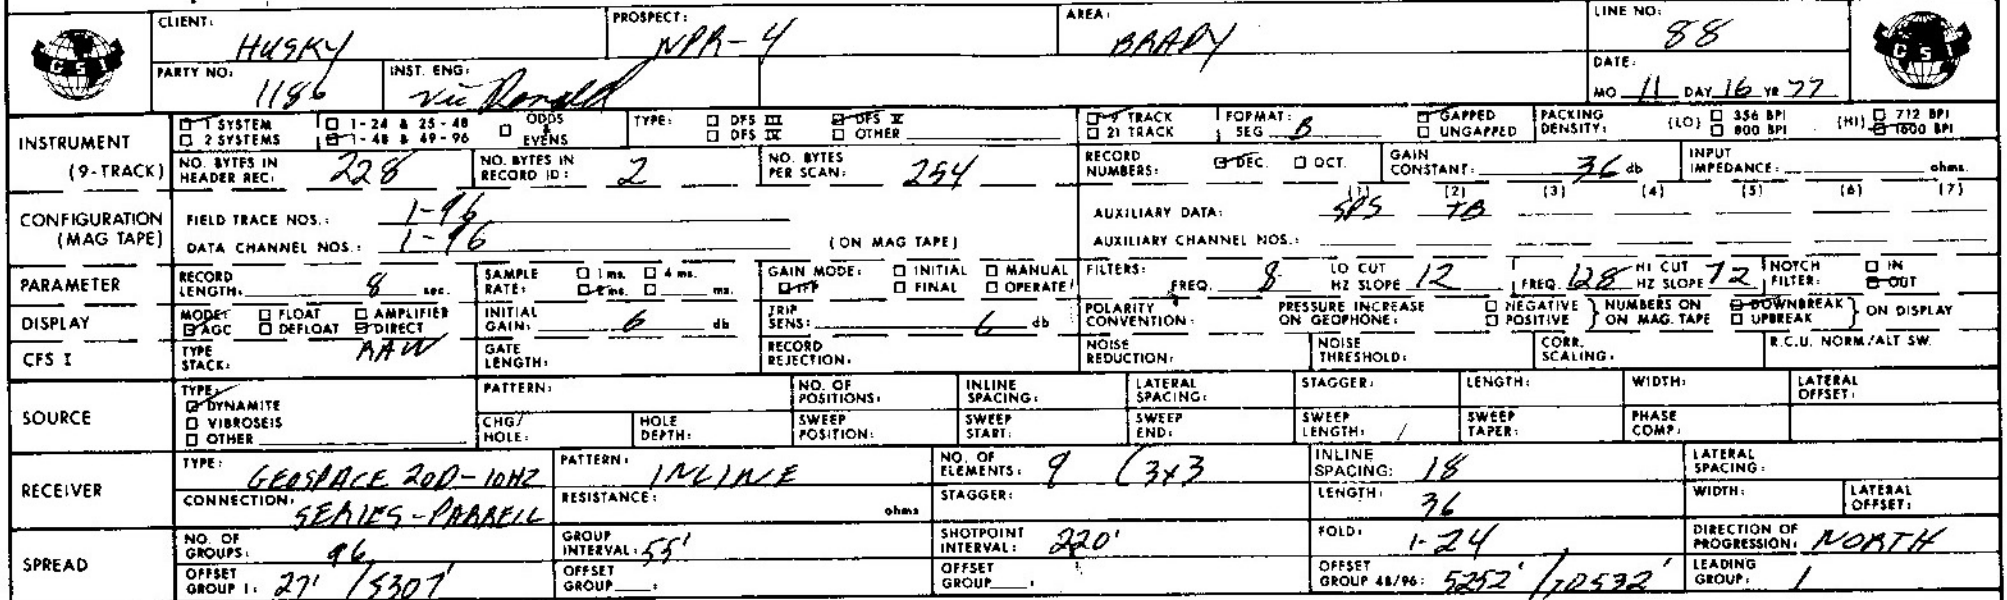 CLIENT: HUSKY PROSPECT: NPR-4 AREA: BRADY LINE NO: 88
GSI GSI
PARTY NO: 1186 INST. ENG: Vic DATE: MO 11 DAY 16 YR 77
INSTRUMENT (9-TRACK) 1 SYSTEM 1-24 & 25-48 ODDS & EVENS TYPE: DFS III DFS V 9 TRACK FORMAT: SEG B GAPPED PACKING DENSITY: (LO) 356 BPI (HI) 712 BPI
2 SYSTEMS 1-48 & 49-96 DFS IV OTHER 21 TRACK UNGAPPED 800 BPI 1600 BPI
NO. BYTES IN HEADER REC: 228 NO. BYTES IN RECORD ID: 2 NO. BYTES PER SCAN: 254 RECORD NUMBERS: DEC. OCT. GAIN CONSTANT: 36 db INPUT IMPEDANCE: ohms.
(1) (2) (3) (4) (5) (6) (7)
CONFIGURATION (MAG TAPE) FIELD TRACE NOS.: 1-96 AUXILIARY DATA: SPS TB
DATA CHANNEL NOS.: 1-96 (ON MAG TAPE) AUXILIARY CHANNEL NOS.:
PARAMETER RECORD LENGTH: 8 sec. SAMPLE RATE: 1 ms. 4 ms. 2 ms. ms. GAIN MODE: INITIAL MANUAL IFP FINAL OPERATE FILTERS: FREQ. 8 LO CUT HZ SLOPE 12 FREQ. 128 HI CUT HZ SLOPE 72 NOTCH FILTER: IN OUT
DISPLAY MODE: FLOAT AMPLIFIER AGC DEFLOAT DIRECT INITIAL GAIN: 6 db TRIP SENS: 6 db POLARITY CONVENTION: PRESSURE INCREASE ON GEOPHONE: NEGATIVE POSITIVE NUMBERS ON ON MAG. TAPE DOWNBREAK UPBREAK ON DISPLAY
CFS I TYPE STACK: RAW GATE LENGTH: RECORD REJECTION: NOISE REDUCTION: NOISE THRESHOLD: CORR. SCALING: R.C.U. NORM/ALT SW.
SOURCE TYPE: DYNAMITE VIBROSEIS OTHER PATTERN: NO. OF POSITIONS: INLINE SPACING: LATERAL SPACING: STAGGER: LENGTH: WIDTH: LATERAL OFFSET:
CHG/HOLE: HOLE DEPTH: SWEEP POSITION: SWEEP START: SWEEP END: SWEEP LENGTH: SWEEP TAPER: PHASE COMP:
RECEIVER TYPE: GEOSPACE 20D-10HZ PATTERN: INLINE NO. OF ELEMENTS: 9 (3x3 INLINE SPACING: 18 LATERAL SPACING:
CONNECTION: SERIES-PARRELL RESISTANCE: ohms STAGGER: LENGTH: 36 WIDTH: LATERAL OFFSET:
SPREAD NO. OF GROUPS: 96 GROUP INTERVAL: 55' SHOTPOINT INTERVAL: 220' FOLD: 1-24 DIRECTION OF PROGRESSION: NORTH
OFFSET GROUP 1: 27' /5307' OFFSET GROUP : OFFSET GROUP : OFFSET GROUP 48/96: 5252' /10532' LEADING GROUP: 1